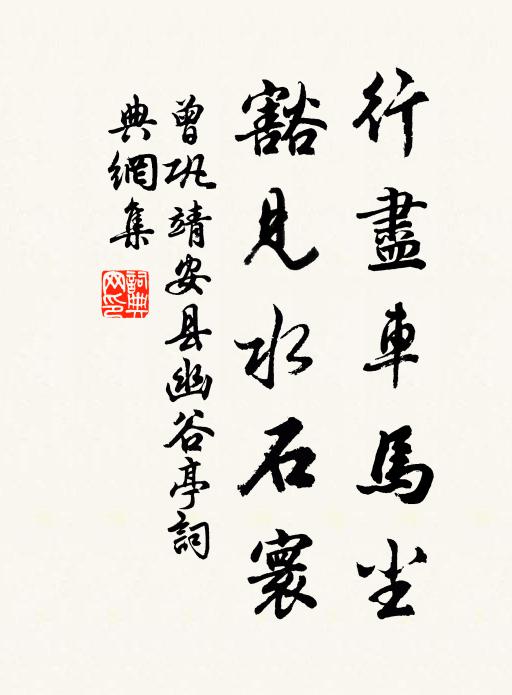 行盡車馬尘
豁見水石寰
曾巩靖安县幽谷亭詞
典網集
詞典
网印